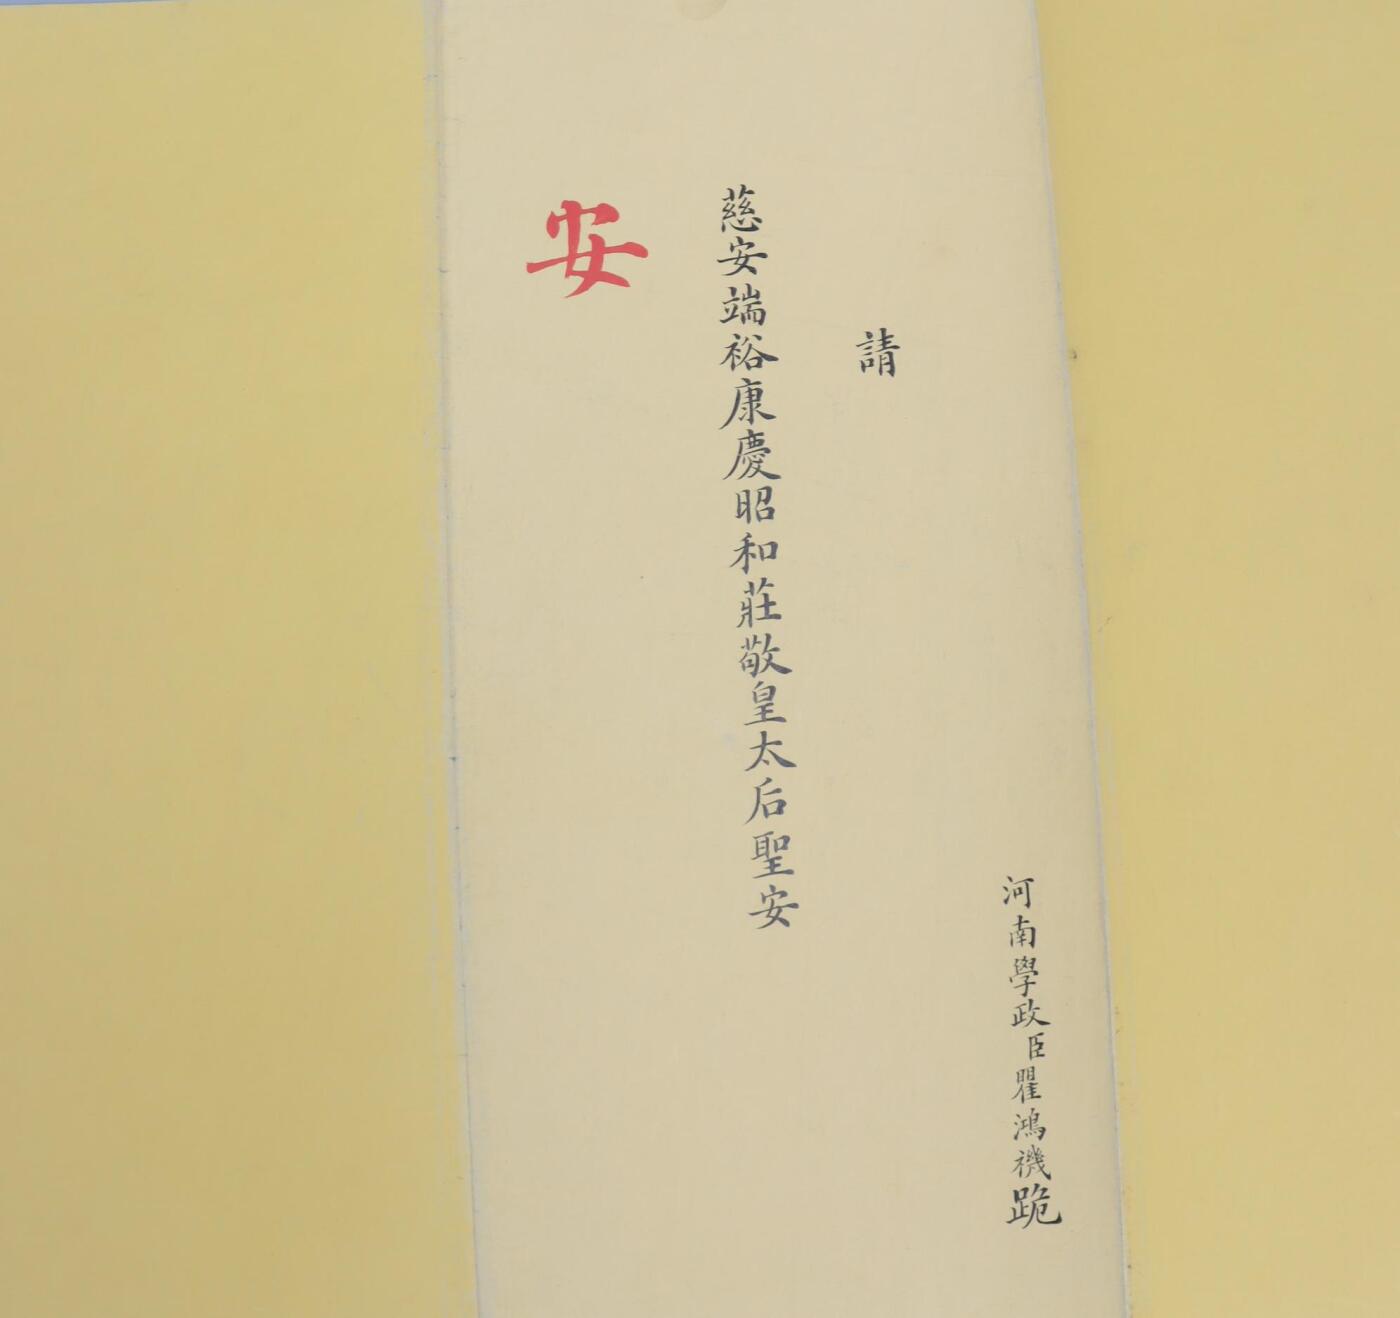 河南學政臣瞿鴻禨跪
請
慈安端裕康慶昭和莊敬皇太后聖安
安